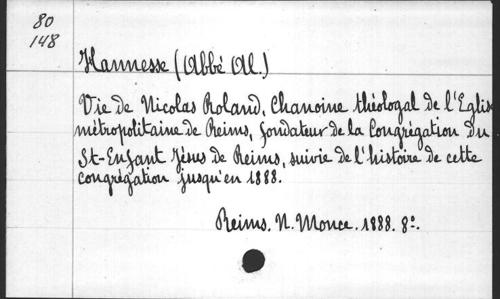 80
148
Hannesse (Abbé Al.)
Vie de Nicolas Roland, Chanoine théologal de l'Eglise
métropolitaine de Reims, fondateur de la Congrégation du
St-Enfant Jésus de Reims, suivie de l'histoire de cette
congrégation jusqu'en 1888.
Reims. N. Monce. 1888. 8º.